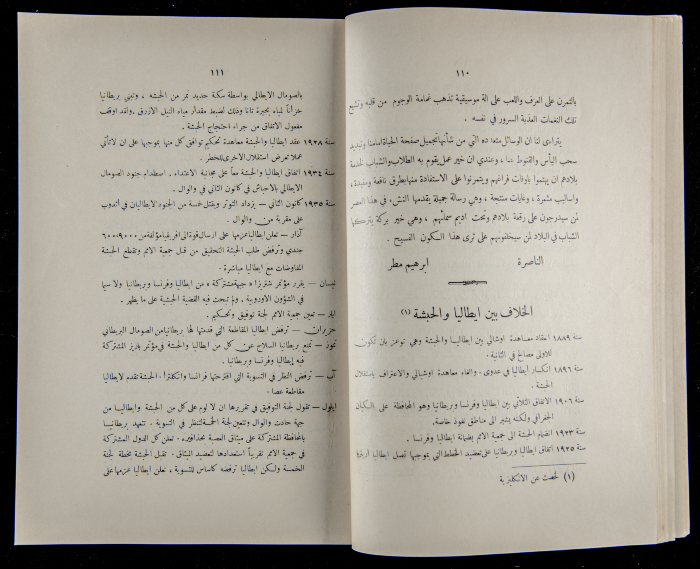 ١١٠
بالتمرن على العزف واللعب على آلة موسيقية تذهب غمامة الوجوم من قلبه وتشيع
تلك النغمات العذبة السرور في نفسه .
يتراءى لنا ان الوسائل متعددة التي من شأنها تجميل صفحة الحياة امامنا وتبديد
سحب اليأس والقنوط عنا ، وعندي ان خير عمل يقوم به الطلاب والشباب لخدمة
بلادهم ان يهتموا باوقات فراغهم ويتمرنوا على الاستفادة منها بطرق نافعة ومفيدة ،
واساليب مثمرة ، وغايات منتجة ، وهي رسالة جميلة يقدمها النشء في هذا العصر
لمن سيدرجون على رقعة بلادهم وتحت اديم سمائهم ، وهي خير بركة يتركها
الشباب في البلاد لمن سيخلفونهم على ثرى هذا الكون الفسيح .
الناصرة ابرهيم مطر
الخلاف بين ايطاليا والحبشة (١)
سنة ١٨٨٩ انعقاد معاهدة اوشيالي بين ايطاليا والحبشة وهي توعز بان تكون
للاولى مصالح في الثانية .
سنة ١٨٩٦ انكسار ايطاليا في عدوى . والغاء معاهدة اوشيالي والاعتراف باستقلال
الحبشة .
سنة ١٩٠٦ الاتفاق الثلاثي بين ايطاليا وفرنسا وبريطانيا وهو المحافظة على الكيان
الجغرافي ولكنه يشير الى مناطق نفوذ خاصة .
سنة ١٩٢٣ انضمام الحبشة الى جمعية الامم بضمانة ايطاليا وفرنسا .
سنة ١٩٢٥ اتفاق ايطاليا وبريطانيا على تعضيد الخطط التي بموجبها تصل ايطاليا اريتريا
(١) لخصت عن الانكليزية
١١١
بالصومال الايطالي بواسطة سكة حديد تمر من الحبشة ، وتبني بريطانيا
خزاناً لمياه بحيرة تانا وذلك لضبط مقدار مياه النيل الازرق . ولقد اوقف
مفعول الاتفاق من جراء احتجاج الحبشة .
سنة ١٩٢٨ عقد ايطاليا والحبشة معاهدة تحكيم توافق كل منها بموجبها على ان لا تأتي
عملا تعرض استقلال الاخرى للخطر .
سنة ١٩٣٤ اتفاق ايطاليا والحبشة معاً على مجانبة الاعتداء . اصطدام جنود الصومال
الايطالي بالاحباش في كانون الثاني في والوال .
سنة ١٩٣٥ كانون الثاني — يزداد التوتر وبقتل خمسة من الجنود لايطاليان في أندوب
على مقربة من والوال .
آذار — تعلن ايطاليا عزمها على ارسال قوة الى افريقيا مؤلفة من ٩٠٠٠-٦٠٠٠
جندي وترفض طلب الحبشة التحقيق من قبل جمعية الامم وتقطع الحبشة
المفاوضات مع ايطاليا مباشرة .
نيسان — يقرر مؤتمر شتريزا « جبهة مشتركة » من ايطاليا وفرنسا وبريطانيا ولا سيا
في الشؤون الاوروبية . ولم تبحث فيه القضية الحبشية على ما يظهر .
ايار — تعين جمعية الامم لجنة توفيق وتحكيم .
حزيران — ترفض ايطاليا المقاطعة التي قدمتها لها بريطانيا من الصومال البريطاني
تموز — تمنع بريطانيا السلاح عن كل من ايطاليا والحبشة في مؤتمر باريز المشتركة
فيه ايطاليا وفرنسا وبريطانيا .
آب — ترفض النظر في التسوية التي اقترحتها فرانسا وانكلترا . الحبشة تقدم لايطاليا
مقاطعة عصا .
ايلول — تقول لجنة التوفيق في تقريرها ان لا لوم على كل من الحبشة وايطاليا من
جهة حادث والوال وتعين لجنة الخمسة لتنظر في التسوية . تتعهد بريطانيا
بالمحافظة المشتركة على ميثاق العصبة بحذافيره . تعلن كل الدول المشتركة
في جمعية الامم تقريباً استعدادها لتعضيد الميثاق . تقبل الحبشة مخطة لجنة
الخمسة ولكن ايطاليا ترفضه كاساس للتسوية ، تعلن ايطاليا عزمها على